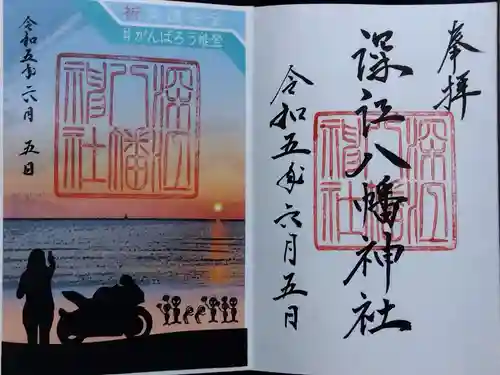 奉拝
深江八幡神社
令和五年六月五日
深江
八幡
神社
祈
#がんばろう能登
令和五年六月五日
深江
八幡
神社